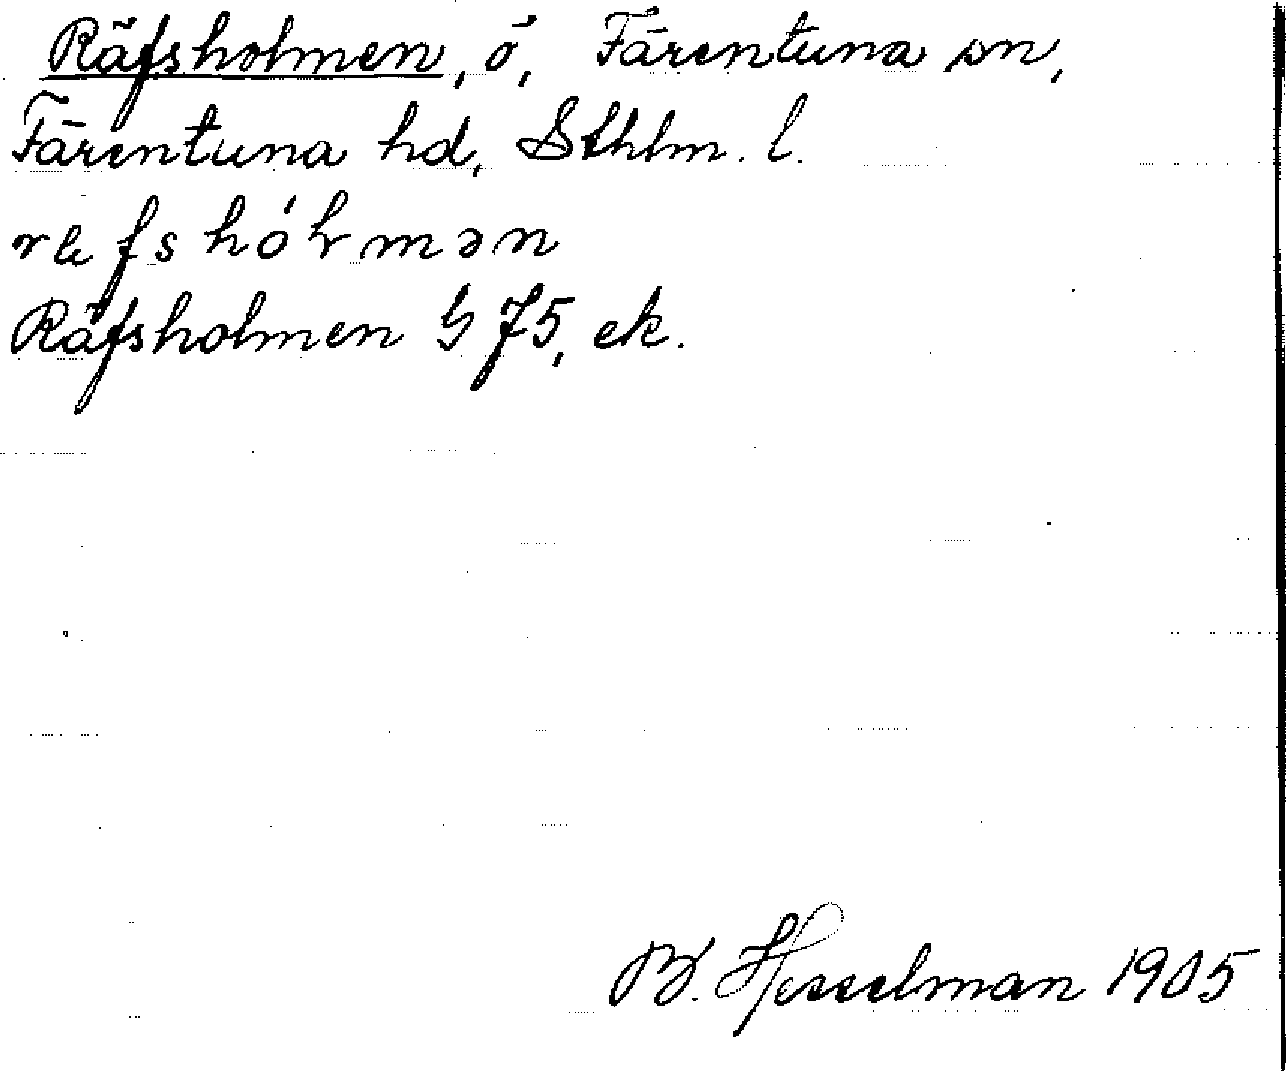 Räfsholmen, ö, Färentuna sn,
Färentuna hd, Sthlm. l.
ræfshólmən
Räfsholmen G 75, ek.
B. Hesselman 1905